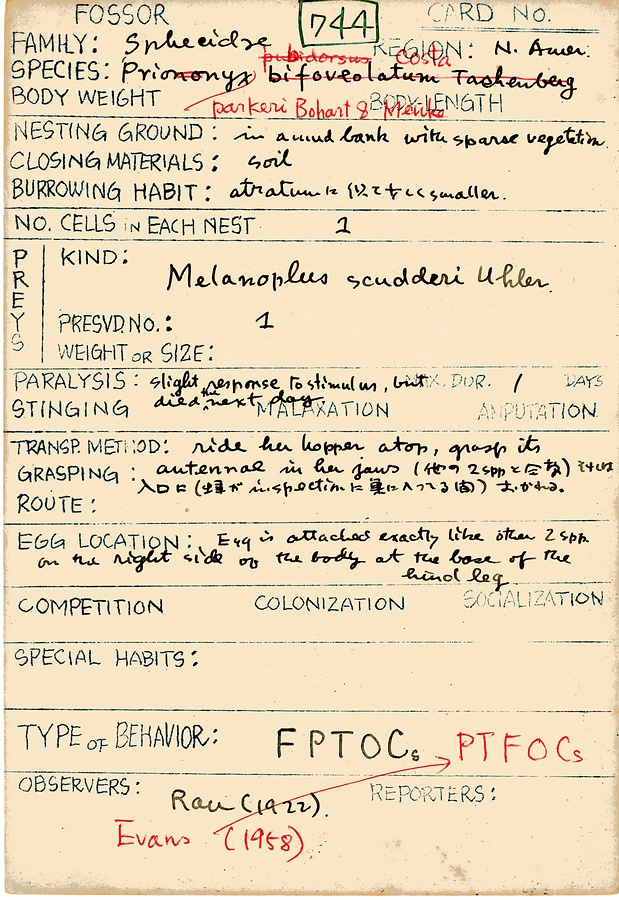 FOSSOR 744 CARD NO.
FAMILY: Sphecidae REGION: N. Amer.
pubidorsus Costa
SPECIES: Prionyx bifoveolatum Taschenberg
BODY WEIGHT BODY LENGTH
parkeri Bohart & Menke
NESTING GROUND: in a mud bank with sparse vegetation
CLOSING MATERIALS: soil
BURROWING HABIT: atratum に smaller.
NO. CELLS IN EACH NEST 1
PREYS
KIND:
Melanoplus scudderi Uhler.
PRESVD. NO.: 1
WEIGHT OR SIZE:
PARALYSIS: slight response to stimulus, but MX. DUR. 1 DAYS
died the next day.
STINGING MALAXATION AMPUTATION
TRANSP. METHOD: ride her hopper atop, grasp its
GRASPING: antennae in her jaws (他の 2 spp と
入口に (蜂が inspection に巣に入ってる間) おかれる。
ROUTE:
EGG LOCATION: Egg is attached exactly like other 2 spp.
on the right side of the body at the base of the
hind leg
COMPETITION COLONIZATION SOCIALIZATION
SPECIAL HABITS:
TYPE OF BEHAVIOR: FPTOCs PTFOCs
OBSERVERS: REPORTERS:
Rau (1922).
Evans (1958)